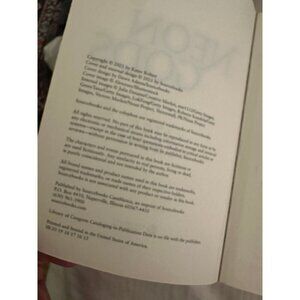 NEON
GODS
Copyright © 2021 by Katee Robert
Cover and internal design © 2021 by Sourcebooks
Cover design by Dawn Adams/Sourcebooks
Sourcebooks and the colophon are registered trademarks of Sourcebooks.
All rights reserved. No part of this book may be reproduced in any form or by
any electronic or mechanical means including information storage and retrieval
systems—except in the case of brief quotations embodied in critical articles or
The characters and events portrayed in this book are fictitious or
are used fictitiously. Any similarity to real persons, living or dead,
is purely coincidental and not intended by the author.
All brand names and product names used in this book are trademarks,
registered trademarks, or trade names of their respective holders.
Sourcebooks is not associated with any product or vendor in this book.
Published by Sourcebooks Casablanca, an imprint of Sourcebooks
P.O. Box 4410, Naperville, Illinois 60567-4410
(630) 961-3900
sourcebooks.com
Library of Congress Cataloging-in-Publication Data is on file with the publisher.
Printed and bound in the United States of America.